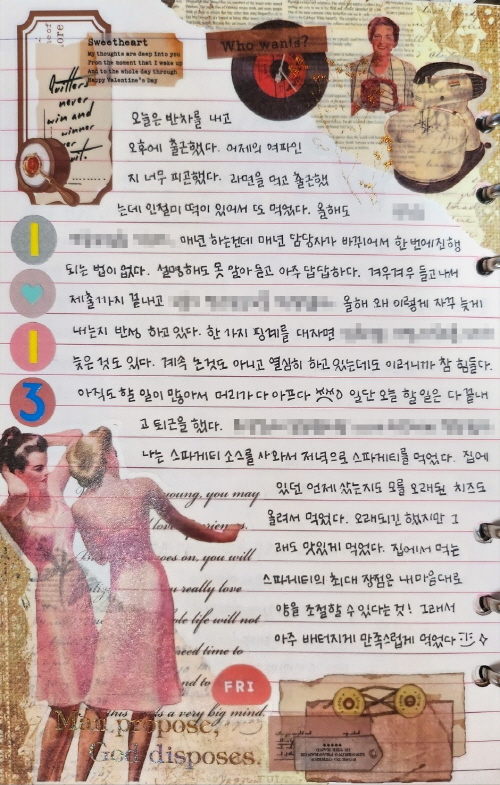 Sweetheart
My thoughts are deep into you
From the moment that I wake up
And to the whole day through
Happy Valentine's Day
Who wants?
Quitters
never
win and
winner
never
quit.
오늘은 반차를 내고
오후에 출근했다. 어제의 여파인
지 너무 피곤했다. 라면을 먹고 출근했
는데 인절미 떡이 있어서 또 먹었다. 올해도
매년 하는건데 매년 담당자가 바뀌어서 한번에 진행
되는 법이 없다. 설명해도 못 알아 듣고 아주 답답하다. 겨우겨우 들고 나서
제출까지 끝내고 올해 왜 이렇게 자꾸 늦게
내는지 반성 하고있다. 한 가지 핑계를 대자면
늦은 것도 있다. 계속 논것도 아니고 열심히 하고 있는데도 이러니까 참 힘들다.
아직도 할 일이 많아서 머리가 다 아프다 일단 오늘 할일은 다 끝내
고 퇴근을 했다.
나는 스파게티 소스를 사와서 저녁으로 스파게티를 먹었다. 집에
있던 언제 샀는지도 모를 오래된 치즈도
올려서 먹었다. 오래되긴 했지만 그
래도 맛있게 먹었다. 집에서 먹는
스파게티의 최대 장점은 내 마음대로
양을 조절할 수 있다는 것! 그래서
아주 배터지게 만족스럽게 먹었다
1
1
3
young, you may
goes on, you will
really love
life will not
need time to
and to
this is a very big mind.
FRI
Man propose,
God disposes.